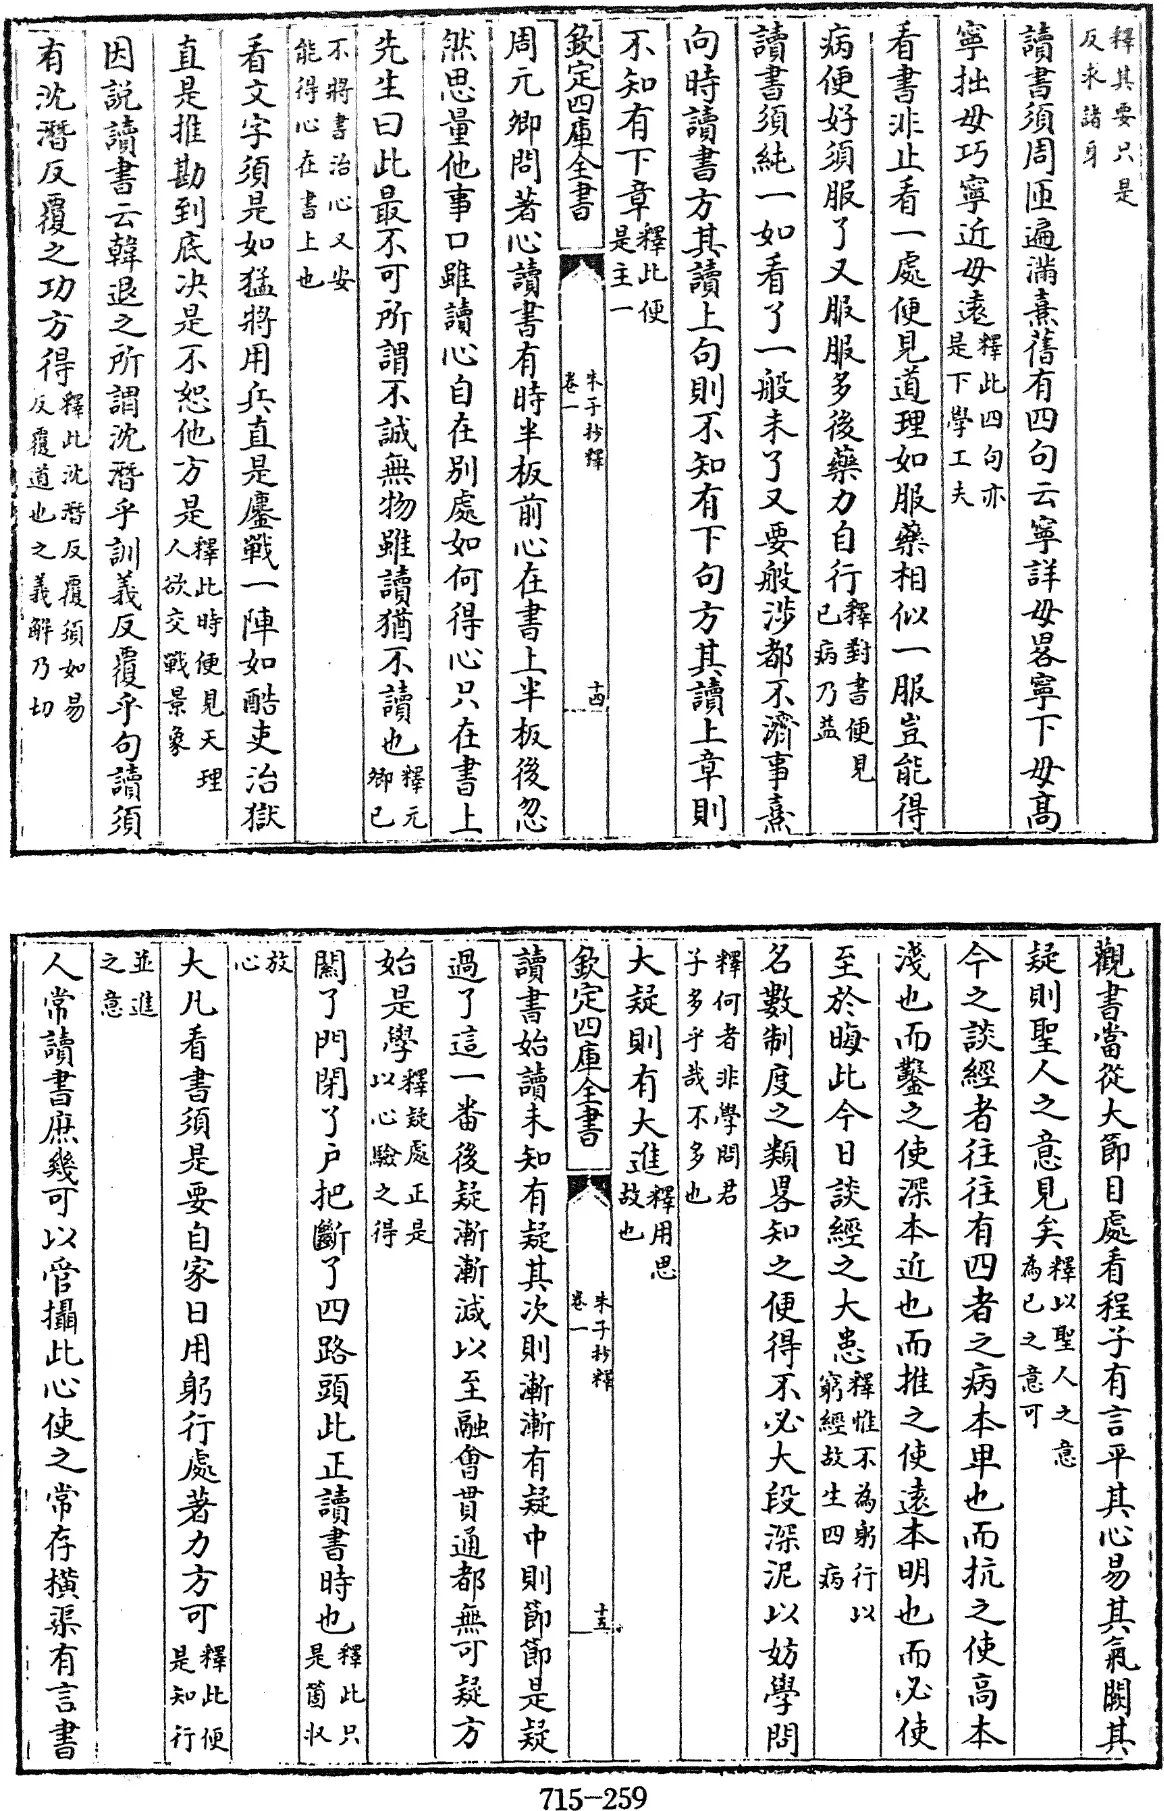 釋其要只是
反求諸身
讀書須周匝遍滿熹舊有四句云寧詳毋畧寧下毋髙
寧拙毋巧寧近毋逺釋此四句亦
是下學工夫
看書非止看一處便見道理如服藥相似一服豈能得
病便好須服了又服服多後藥力自行釋對書便見
已病乃益
讀書須純一如看了一般未了又要般涉都不濟事熹
向時讀書方其讀上句則不知有下句方其讀上章則
不知有下章釋此便
是主一
欽定四庫全書
朱子抄釋
卷一
十四
周元卿問著心讀書有時半板前心在書上半板後忽
然思量他事口雖讀心自在別處如何得心只在書上
先生曰此最不可所謂不誠無物雖讀猶不讀也釋元
卿已
不將書治心又安
能得心在書上也
看文字須是如猛將用兵直是鏖戰一陣如酷吏治獄
直是推勘到底決是不恕他方是釋此時便見天理
人欲交戰景象
因説讀書云韓退之所謂沈潛乎訓義反覆乎句讀須
有沈潛反覆之功方得釋此沈潛反覆須如易
反覆道也之義解乃切
觀書當從大節目處看程子有言平其心易其氣闕其
疑則聖人之意見矣釋以聖人之意
為已之意可
今之談經者往往有四者之病本卑也而抗之使高本
淺也而鑿之使深本近也而推之使逺本明也而必使
至於晦此今日談經之大患釋惟不為躬行以
窮經故生四病
名數制度之類畧知之便得不必大段深泥以妨學問
釋何者非學問君
子多乎哉不多也
大疑則有大進釋用思
故也
欽定四庫全書
朱子抄釋
卷一
十五
讀書始讀未知有疑其次則漸漸有疑中則節節是疑
過了這一番後疑漸漸減以至融會貫通都無可疑方
始是學釋疑處正是
以心驗之得
關了門閉了户把斷了四路頭此正讀書時也釋此只
是箇収
放
心
大凡看書須是要自家日用躬行處著力方可釋此便
是知行
並進
之意
人常讀書庶幾可以管攝此心使之常存横渠有言書
715-259